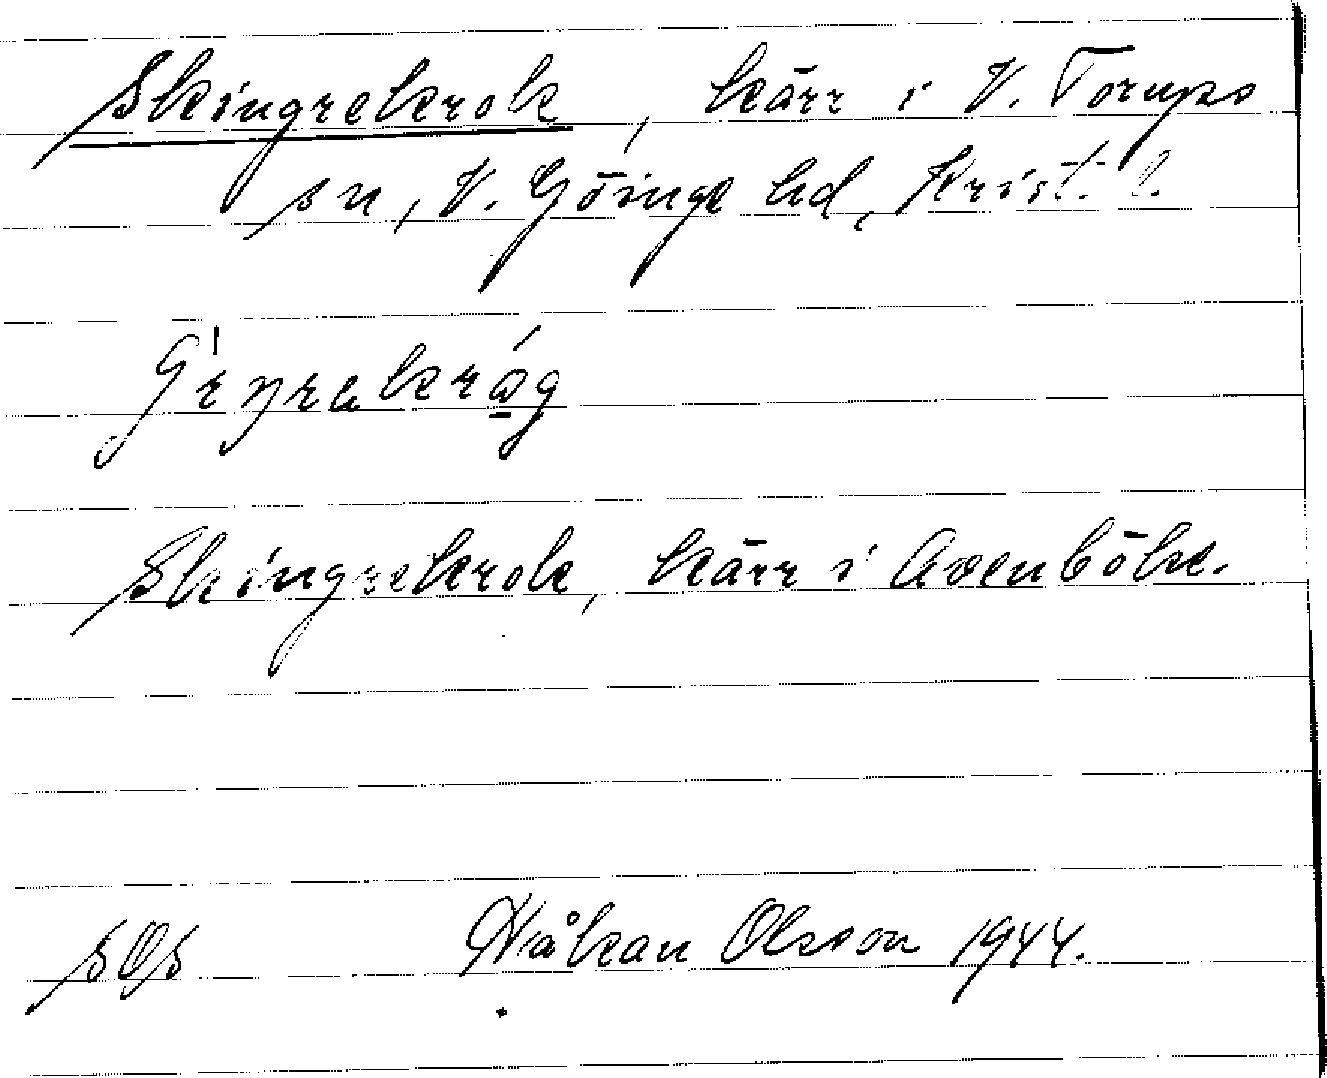 Skingrekrok, kärr i V. Torups
sn, V. Göinge hd, Krist. l.
Skingrekrok, kärr i Avenböke.
SOS Håkan Olsson 1944.